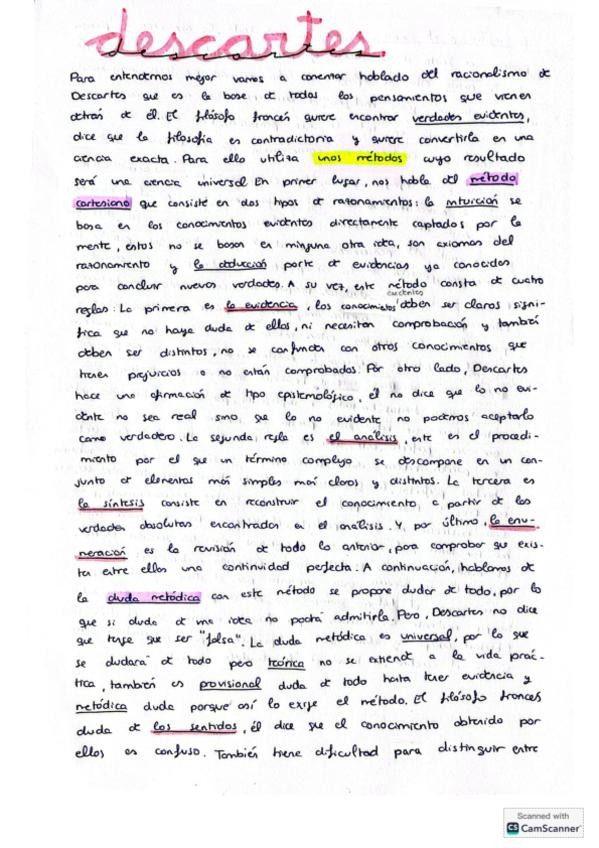 descartes
Para entendernos mejor vamos a comentar hablado del racionalismo de
Descartes que es la base de todas los pensamientos que vienen
detras de él. El filósofo francés quiere encontrar verdades evidentes,
dice que la filosofía es contradictoria y quiere convertirla en una
ciencia exacta. Para ello utiliza unos métodos cuyo resultado
será una ciencia universal En primer lugar, nos habla del método
cartesiano que consiste en dos tipos de razonamientos: la intuición se
basa en los conocimientos evidentes directamente captados por la
mente, estos no se basan en ninguna otra idea, son axiomas del
razonamiento y la deducción parte de evidencias ya conocidas
para concluir nuevas verdades. A su vez, este método consta de cuatro
reglas: La primera es la evidencia, los conocimientos evidentes deben ser claros signi-
fica que no haya duda de ellos, ni necesitan comprobación y también
deben ser distintos, no se confunda con otros conocimientos que
tienen prejuicios o no están comprobados. Por otro lado, Descartes
hace una afirmación de tipo epistemológico, él no dice que lo no evi-
dente no sea real sino, que lo no evidente no podemos aceptarlo
como verdadero. La segunda regla es el análisis, este es el procedi-
miento por el que un término complejo se descompone en un con-
junto de elementos más simples más claros y distintos. La tercera es
la síntesis consiste en reconstruir el conocimiento, a partir de las
verdades absolutas encontradas en el análisis. Y, por último, la enu-
meración es la revisión de todo lo anterior, para comprobar que exis-
ta entre ellos una continuidad perfecta. A continuación, hablamos de
la duda metódica con este método se propone dudar de todo, por lo
que si duda de una idea no podrá admitirla. Pero, Descartes no dice
que tenga que ser "falsa". La duda metódica es universal, por lo que
se dudará de todo pero teórica no se extiende a la vida prác-
tica, también es provisional duda de todo hasta tener evidencia y
metódica duda porque así lo exige el método. El filósofo frances
duda de los sentidos, él dice que el conocimiento obtenido por
ellos es confuso. También tiene dificultad para distinguir entre
Scanned with
CS CamScanner